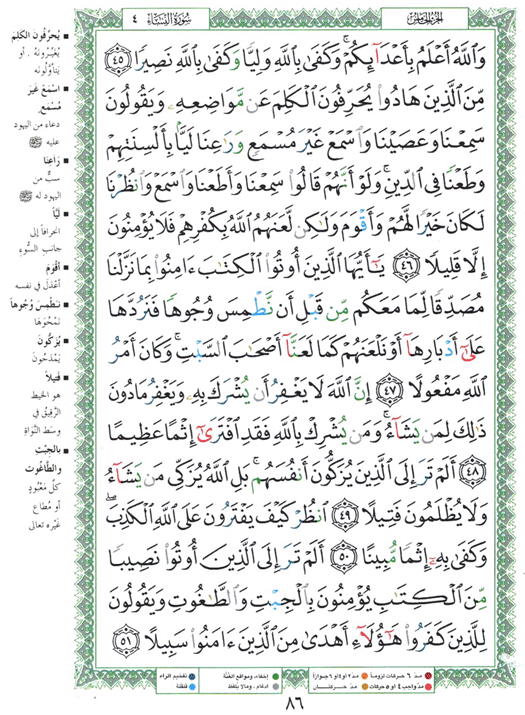 الجزء الخامس
سورة النساء ٤
وَاللَّهُ أَعْلَمُ بِأَعْدَآئِكُمْ ۚ وَكَفَىٰ بِاللَّهِ وَلِيًّا وَكَفَىٰ بِاللَّهِ نَصِيرًا ﴿٤٥﴾
مِّنَ الَّذِينَ هَادُوا يُحَرِّفُونَ الْكَلِمَ عَن مَّوَاضِعِهِ وَيَقُولُونَ
سَمِعْنَا وَعَصَيْنَا وَاسْمَعْ غَيْرَ مُسْمَعٍ وَرَاعِنَا لَيًّا بِأَلْسِنَتِهِمْ
وَطَعْنًا فِي الدِّينِ ۚ وَلَوْ أَنَّهُمْ قَالُوا سَمِعْنَا وَأَطَعْنَا وَاسْمَعْ وَانظُرْنَا
لَكَانَ خَيْرًا لَّهُمْ وَأَقْوَمَ وَلَٰكِن لَّعَنَهُمُ اللَّهُ بِكُفْرِهِمْ فَلَا يُؤْمِنُونَ
إِلَّا قَلِيلًا ﴿٤٦﴾ يَٰٓأَيُّهَا الَّذِينَ أُوتُوا الْكِتَٰبَ ءَامِنُوا بِمَا نَزَّلْنَا
مُصَدِّقًا لِّمَا مَعَكُم مِّن قَبْلِ أَن نَّطْمِسَ وُجُوهًا فَنَرُدَّهَا
عَلَىٰٓ أَدْبَارِهَآ أَوْ نَلْعَنَهُمْ كَمَا لَعَنَّآ أَصْحَٰبَ السَّبْتِ ۚ وَكَانَ أَمْرُ
اللَّهِ مَفْعُولًا ﴿٤٧﴾ إِنَّ اللَّهَ لَا يَغْفِرُ أَن يُشْرَكَ بِهِ وَيَغْفِرُ مَا دُونَ
ذَٰلِكَ لِمَن يَشَآءُ ۚ وَمَن يُشْرِكْ بِاللَّهِ فَقَدِ افْتَرَىٰٓ إِثْمًا عَظِيمًا
﴿٤٨﴾ أَلَمْ تَرَ إِلَى الَّذِينَ يُزَكُّونَ أَنفُسَهُم ۚ بَلِ اللَّهُ يُزَكِّي مَن يَشَآءُ
وَلَا يُظْلَمُونَ فَتِيلًا ﴿٤٩﴾ انظُرْ كَيْفَ يَفْتَرُونَ عَلَى اللَّهِ الْكَذِبَ ۖ
وَكَفَىٰ بِهِ إِثْمًا مُّبِينًا ﴿٥٠﴾ أَلَمْ تَرَ إِلَى الَّذِينَ أُوتُوا نَصِيبًا
مِّنَ الْكِتَٰبِ يُؤْمِنُونَ بِالْجِبْتِ وَالطَّٰغُوتِ وَيَقُولُونَ
لِلَّذِينَ كَفَرُوا هَٰٓؤُلَآءِ أَهْدَىٰ مِنَ الَّذِينَ ءَامَنُوا سَبِيلًا ﴿٥١﴾
يُحَرِّفُونَ الكَلِمَ
يُغَيِّرُونَهُ . أو
يتأوَّلونه
اسْمَعْ غَيْرَ
مُسْمَعٍ
دعاء من اليهود
عليه ﷺ
رَاعِنَا
سبٌّ من
اليهود له ﷺ
لَيًّا
انحرافًا إلى
جانب السُّوءِ
أَقْوَمَ
أعْدَلَ في نفسه
نَطْمِسَ وُجُوهًا
نَمْحُوَهَا
يُزَكُّونَ
يَمْدَحُونَ
فَتِيلًا
هو الخيط
الرَّقيق في
وسط النَّوَاةِ
بالجِبْتِ
والطَّاغُوتِ
كلِّ مَعْبُودٍ
أو مُطاعٍ
غَيْرِه تعالى
مدّ ٦ حركات لزوماً
مدّ٢ أو٤ أو ٦ جوازاً
إخفاء، ومواقع الغنّة
تفخيم الراء
مدّ واجب ٤ أو ٥ حركات
مدّ حركتان
إدغام ، وما لا يلفظ
قلقلة
٨٦